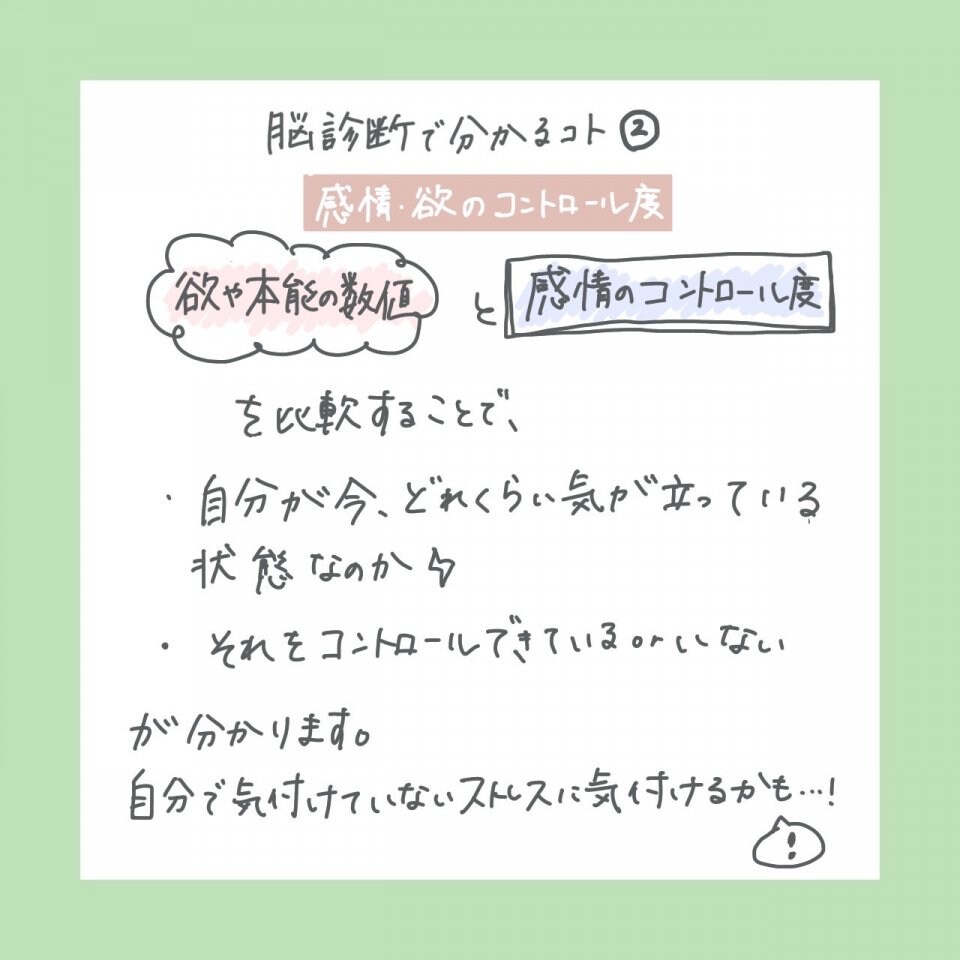 脳診断で分かるコト②
感情・欲のコントロール度
欲や本能の数値 と 感情のコントロール度
を比較することで、
・自分が今、どれくらい気が立っている
状態なのか
・それをコントロールできているorいない
が分かります。
自分で気付けていないストレスに気付けるかも…!
!